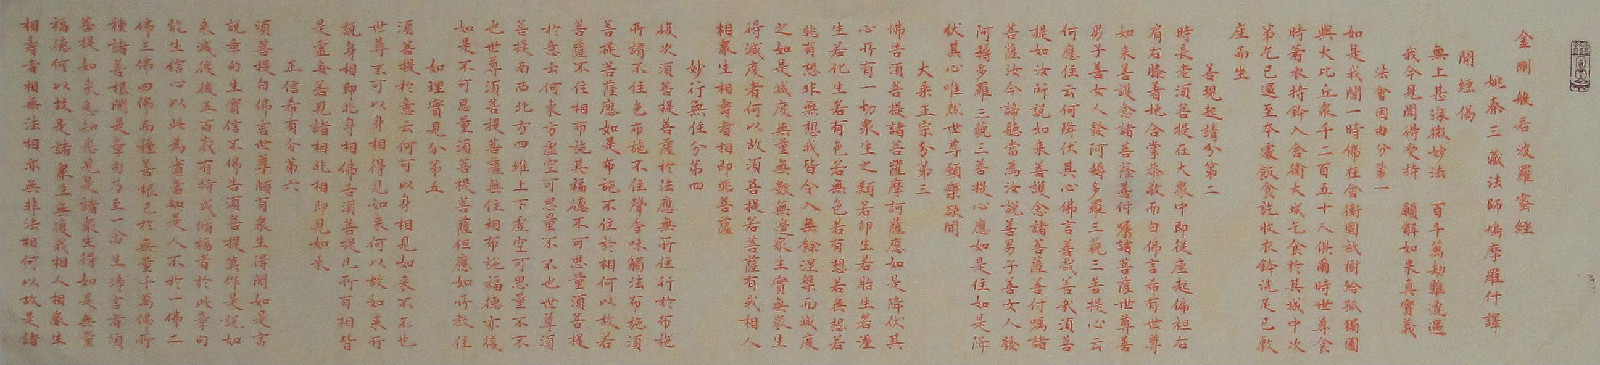 金剛般若波羅蜜經
姚秦三藏法師鳩摩羅什譯
開經偈
無上甚深微妙法　百千萬劫難遭遇
我今見聞得受持　願解如來真實義
法會因由分第一
如是我聞一時佛在舍衛國祇樹給孤獨園
與大比丘眾千二百五十人俱爾時世尊食
時著衣持鉢入舍衛大城乞食於其城中次
第乞已還至本處飯食訖收衣鉢洗足已敷
座而坐
善現起請分第二
時長老須菩提在大眾中即從座起偏袒右
肩右膝著地合掌恭敬而白佛言希有世尊
如來善護念諸菩薩善付囑諸菩薩世尊善
男子善女人發阿耨多羅三藐三菩提心云
何應住云何降伏其心佛言善哉善哉須菩
提如汝所說如來善護念諸菩薩善付囑諸
菩薩汝今諦聽當為汝說善男子善女人發
阿耨多羅三藐三菩提心應如是住如是降
伏其心唯然世尊願樂欲聞
大乘正宗分第三
佛告須菩提諸菩薩摩訶薩應如是降伏其
心所有一切眾生之類若卵生若胎生若濕
生若化生若有色若無色若有想若無想若
非有想非無想我皆令入無餘涅槃而滅度
之如是滅度無量無數無邊眾生實無眾生
得滅度者何以故須菩提若菩薩有我相人
相眾生相壽者相即非菩薩
妙行無住分第四
復次須菩提菩薩於法應無所住行於布施
所謂不住色布施不住聲香味觸法布施須
菩提菩薩應如是布施不住於相何以故若
菩薩不住相布施其福德不可思量須菩提
於意云何東方虛空可思量不不也世尊須
菩提南西北方四維上下虛空可思量不不
也世尊須菩提菩薩無住相布施福德亦復
如是不可思量須菩提菩薩但應如所教住
如理實見分第五
須菩提於意云何可以身相見如來不不也
世尊不可以身相得見如來何以故如來所
說身相即非身相佛告須菩提凡所有相皆
是虛妄若見諸相非相即見如來
正信希有分第六
須菩提白佛言世尊頗有眾生得聞如是言
說章句生實信不佛告須菩提莫作是說如
來滅後後五百歲有持戒修福者於此章句
能生信心以此為實當知是人不於一佛二
佛三佛四佛而種善根已於無量千萬佛所
種諸善根聞是章句乃至一念生淨信者須
菩提如來悉知悉見是諸眾生得如是無量
福德何以故是諸眾生無復我相人相眾生
相壽者相無法相亦無非法相何以故是諸